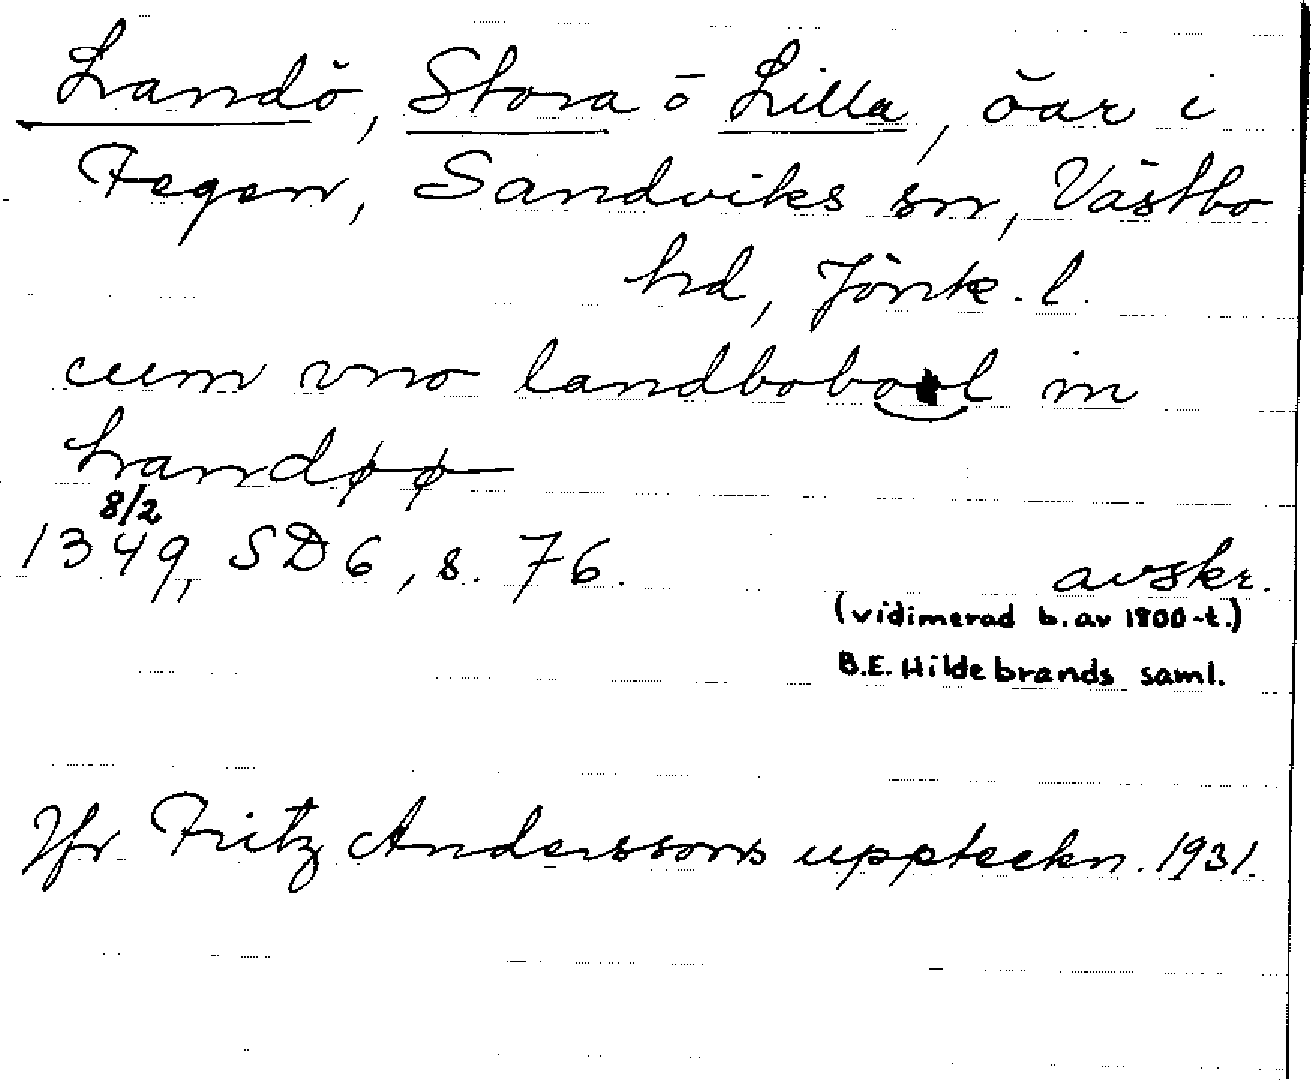 Landö, Stora o Lilla, öar i
Fegen, Sandviks sn, Västbo
hd, Jönk. l.
cum vno landbobool in
Landøø
8/2
1349, SD 6, s. 76.
avskr.
(vidimerad b. av 1800-t.)
B.E. Hildebrands saml.
Jfr Fritz Anderssons uppteckn. 1931.